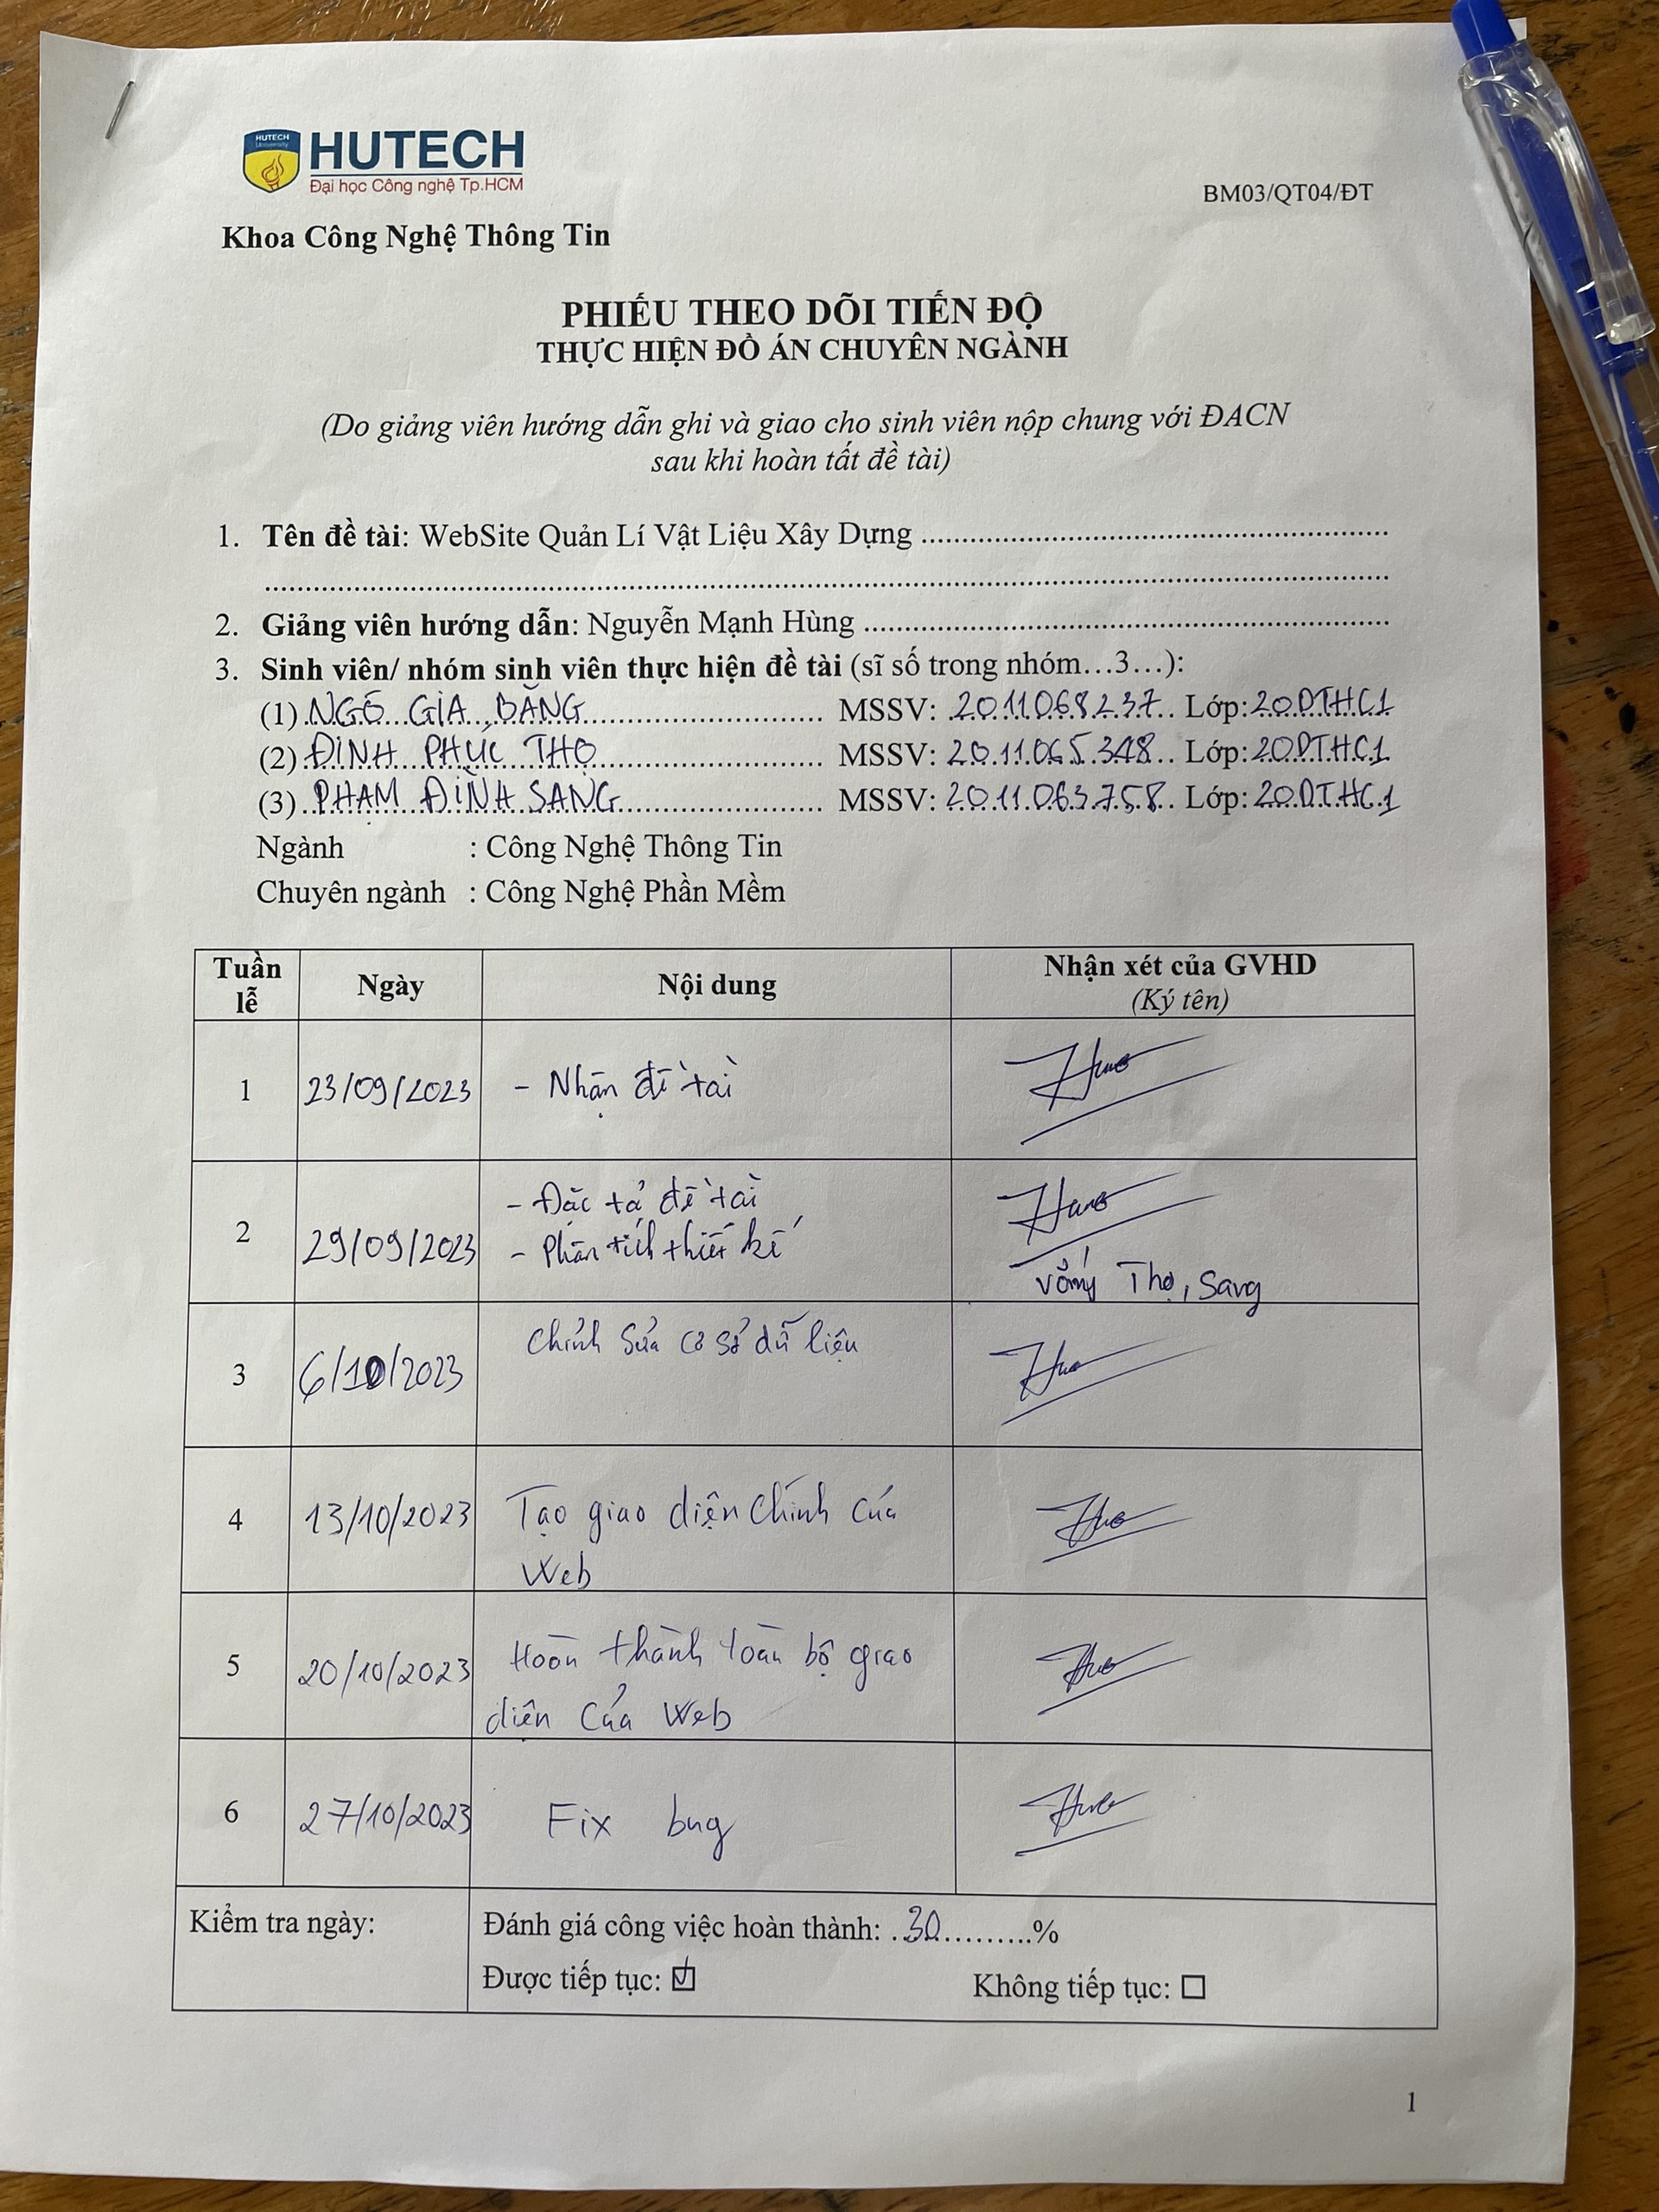 HUTECH
University
HUTECH
Đại học Công nghệ Tp.HCM
BM03/QT04/ĐT
Khoa Công Nghệ Thông Tin
PHIẾU THEO DÕI TIẾN ĐỘ
THỰC HIỆN ĐỒ ÁN CHUYÊN NGÀNH
(Do giảng viên hướng dẫn ghi và giao cho sinh viên nộp chung với ĐACN
sau khi hoàn tất đề tài)
1. Tên đề tài: WebSite Quản Lí Vật Liệu Xây Dựng
2. Giảng viên hướng dẫn: Nguyễn Mạnh Hùng
3. Sinh viên/ nhóm sinh viên thực hiện đề tài (sĩ số trong nhóm…3…):
(1) NGÔ GIA BẢNG MSSV: 2011068237 Lớp: 20DTHC1
(2) ĐINH PHÚC THỌ MSSV: 2011065348 Lớp: 20DTHC1
(3) PHẠM ĐÌNH SANG MSSV: 2011063758 Lớp: 20DTHC1
Ngành : Công Nghệ Thông Tin
Chuyên ngành : Công Nghệ Phần Mềm
Tuần lễ Ngày Nội dung Nhận xét của GVHD
(Ký tên)
1 23/09/2023 - Nhận đề tài
2 29/09/2023 - Đặc tả đề tài
- Phân tích thiết kế
Vắng Thọ, Sang
3 6/10/2023 Chỉnh sửa cơ sở dữ liệu
4 13/10/2023 Tạo giao diện chính của
Web
5 20/10/2023 Hoàn thành toàn bộ giao
diện của Web
6 27/10/2023 Fix bug
Kiểm tra ngày: Đánh giá công việc hoàn thành: 30 %
Được tiếp tục: ☑ Không tiếp tục: ☐
1